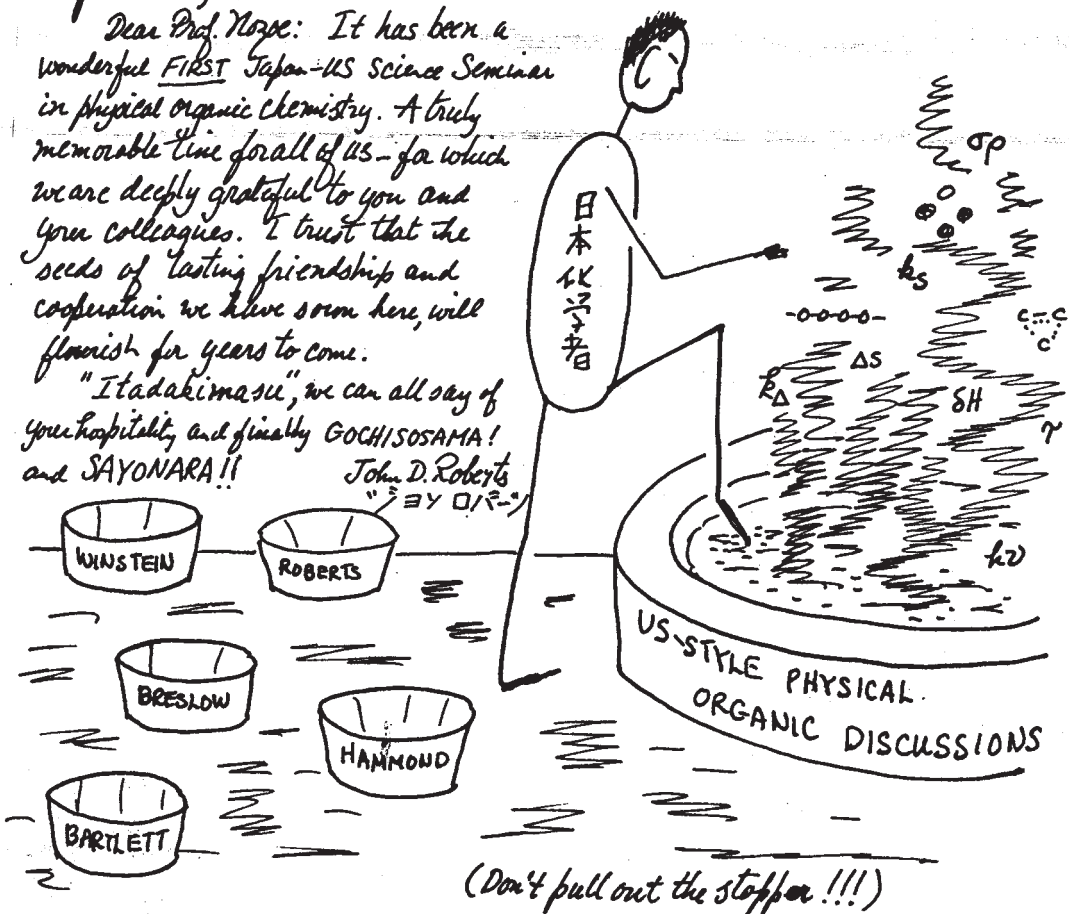 Dear Prof. Nozoe: It has been a
wonderful FIRST Japan-US Science Seminar
in physical organic chemistry. A truly
memorable time for all of us - for which
we are deeply grateful to you and
your colleagues. I trust that the
seeds of lasting friendship and
cooperation we have sown here, will
flourish for years to come.
"Itadakimasu", we can all say of
your hospitality and finally GOCHISOSAMA!
and SAYONARA!!
John D. Roberts
"ジョン ロバーツ
日本化学者
σρ
ks
-oooo-
C--C
C
ΔS
kΔ
δH
τ
hν
WINSTEIN
ROBERTS
BRESLOW
HAMMOND
BARTLETT
US-STYLE PHYSICAL
ORGANIC DISCUSSIONS
(Don't pull out the stopper!!!)